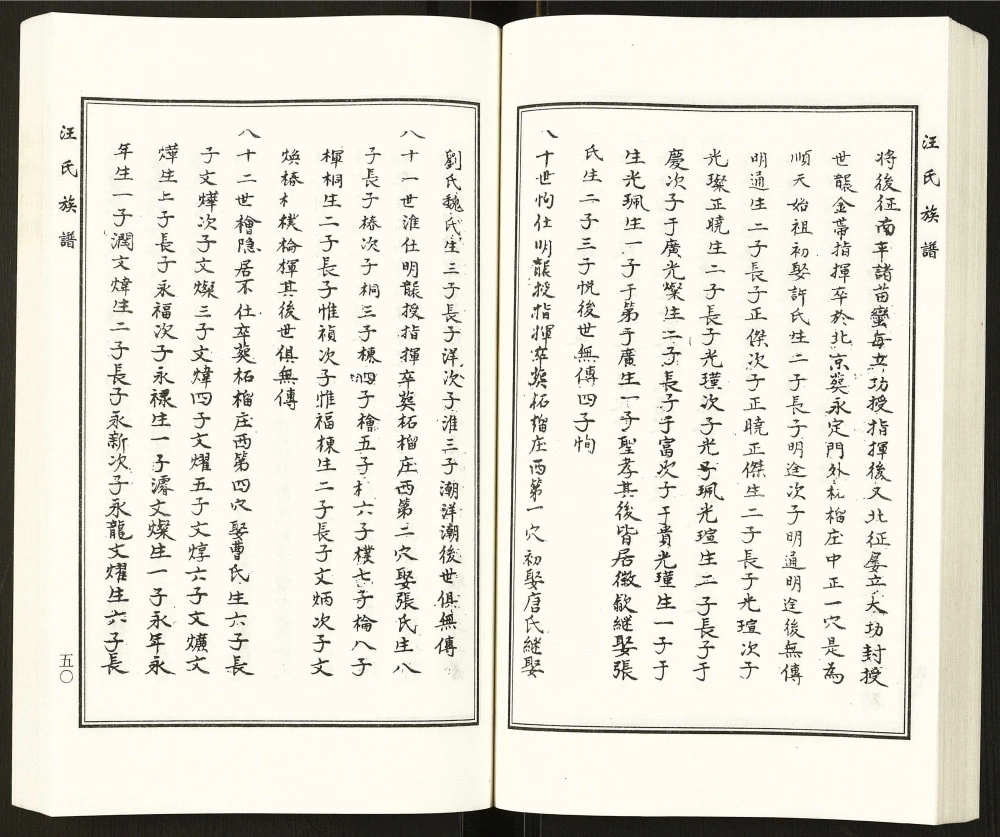 汪氏族譜
將後征南平諸苗蠻每立功授指揮後又北征屡立大功封授
世襲金帶指揮卒於北京葬永定門外柘榴庄中正一穴是為
順天始祖初娶許氏生二子長子明途次子明通明途後無傳
明通生二子長子正傑次子正曉正傑生二子長子光瑄次子
光璨正曉生二子長子光瑾次子光珮光瑄生二子長子于
慶次子于廣光燦生二子長子于富次子于貴光瑾生一子于
生光珮生一子于第于廣生一子聖孝其後皆居徽歙継娶張
氏生二子三子悦後世無傳四子恂
八十世恂仕明襲授指揮卒葬柘榴庄西第一穴初娶唐氏継娶
劉氏魏氏生三子長子洋次子淮三子潮洋潮後世俱無傳
八十一世淮仕明襲授指揮卒葬柘榴庄西第二穴娶張氏生八
子長子椿次子桐三子棟四子檜五子朩六子樸七子棆八子
楎桐生二子長子惟禎次子惟福棟生二子長子文炳次子文
焕椿朩樸棆楎其後世俱無傳
八十二世檜隐居不仕卒葬柘榴庄西第四穴娶曹氏生六子長
子文燁次子文燦三子文煒四子文燿五子文焞六子文爌文
燁生二子長子永福次子永禄生一子濬文燦生一子永年永
年生一子潤文煒生二子長子永新次子永龍文燿生六子長
汪氏族譜
五〇